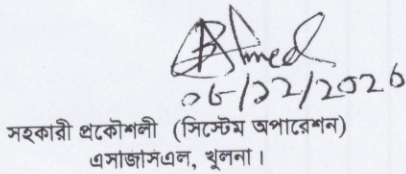 Ahmed
06/02/2026
সহকারী প্রকৌশলী (সিস্টেম অপারেশন)
এসজিসিএল, খুলনা।